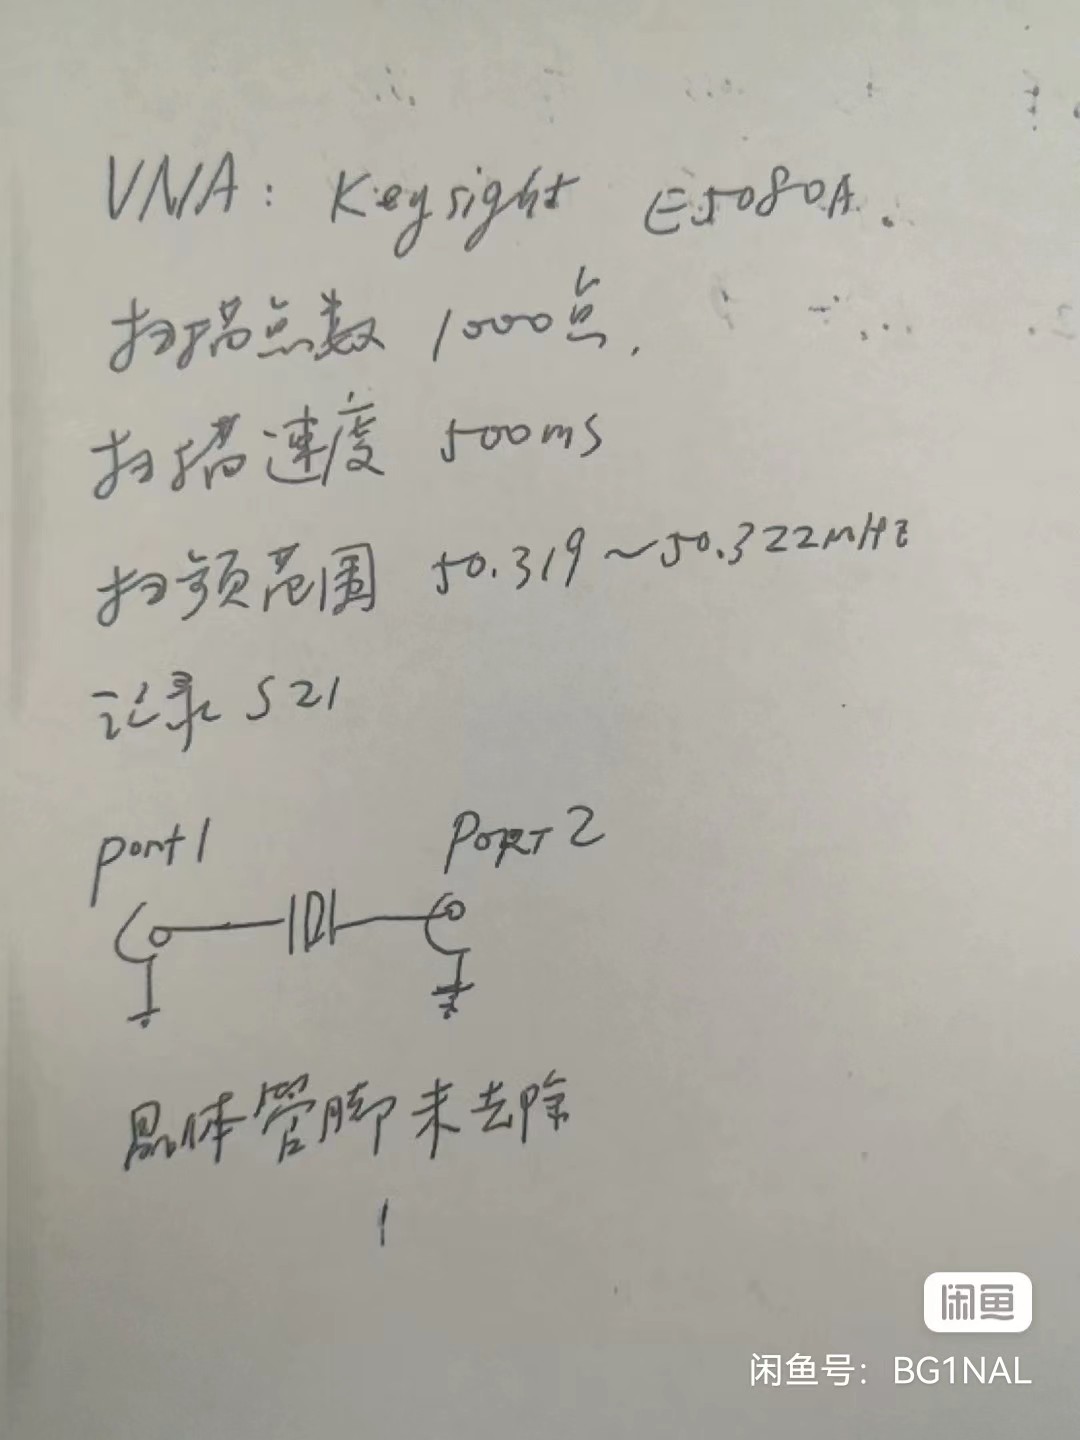 VNA: Keysight E5080A.
扫描点数 1000点.
扫描速度 500ms
扫频范围 50.319~50.322MHz
记录 S21
port1 PORT2
晶体管脚未去除
1
闲鱼
闲鱼号：BG1NAL